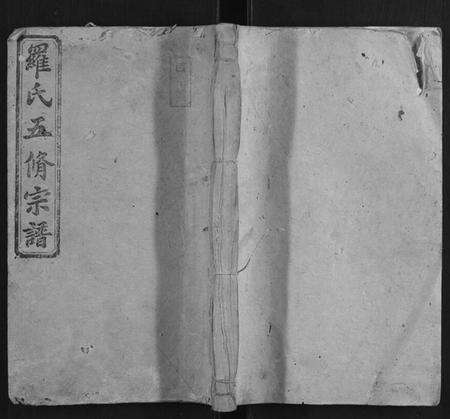 羅氏五脩宗譜